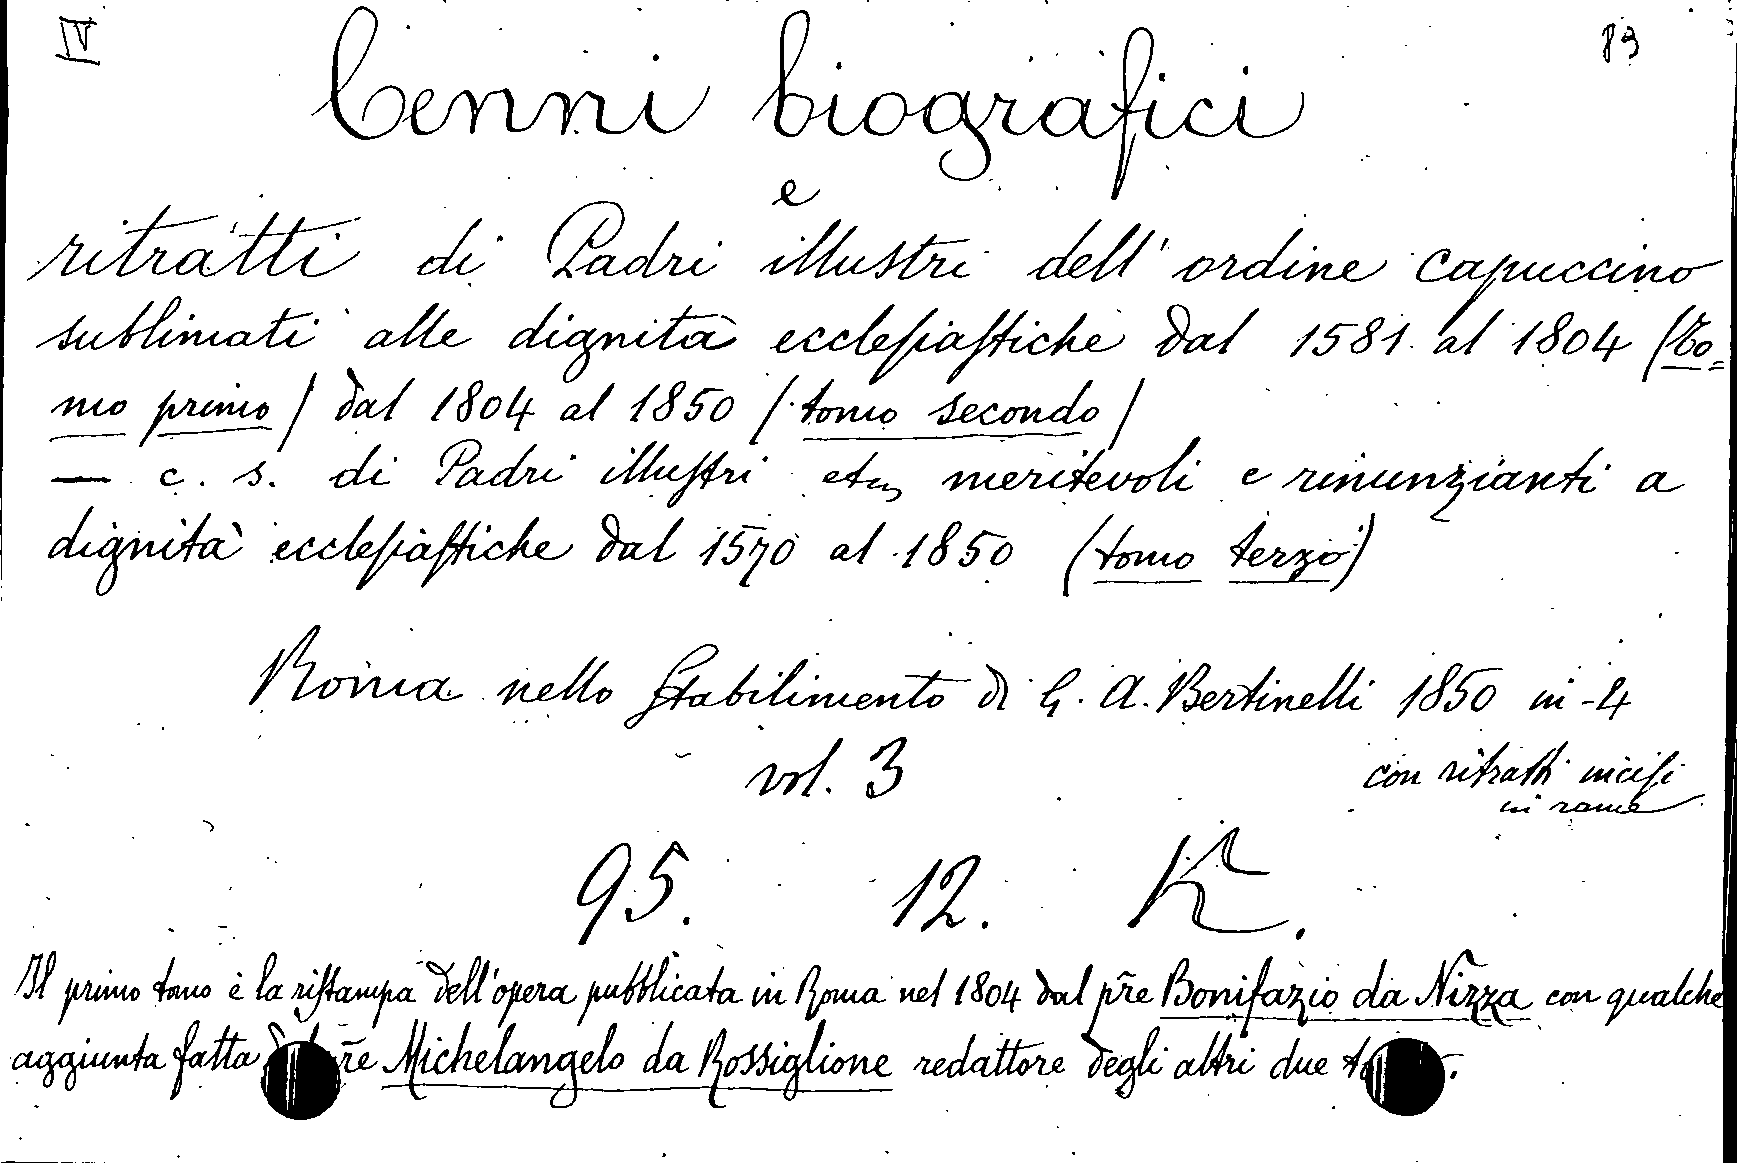 IV 83
Cenni biografici
e
ritratti di Padri illustri dell' ordine capuccino
sublimati alle dignità ecclesiastiche dal 1581 al 1804 (to=
mo primo) dal 1804 al 1850 (tomo secondo)
— c. s. di Padri illustri meritevoli e rinunzianti a
dignità ecclesiastiche dal 1570 al 1850 (tomo terzo)
Roma nello Stabilimento di G. A. Bertinelli 1850 in-4
vol. 3 con ritratti incisi
in rame
95. 12. K.
Il primo tomo è la ristampa dell'opera pubblicata in Roma nel 1804 dal pre Bonifazio da Nizza con qualche
aggiunta fatta Michelangelo da Rossiglione redattore degli altri due